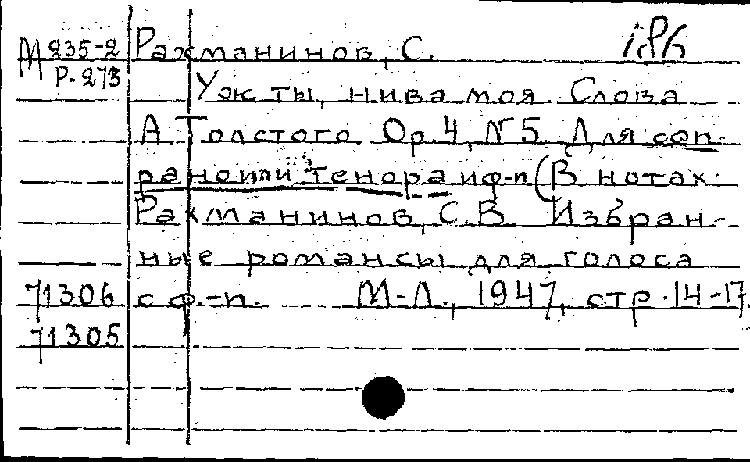 М 235-2 Рахманинов, С.
Р-273
Уж ты, нива моя Слова
А. Толстого. Ор. 4, N 5. Для соп-
рано или тенора и ф-п (В нотах:
Рахманинов, С.В. Избран-
ные романсы для голоса
71306 с ф.-п. М-Л., 1947, стр. 14-17.
71305